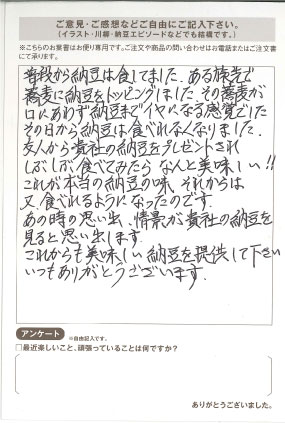 ご意見・ご感想などご自由にご記入下さい。
(イラスト・川柳・納豆エピソードなどでも結構です。)
※こちらのお葉書はお便り専用です。ご注文や商品の問い合わせはお電話またはご注文書
にて承ります。
普段から納豆は食してました。ある旅先で
蕎麦に納豆をトッピングしました。その蕎麦が
口にあわず納豆までイヤになる感覚でした
その日から納豆は食べれなくなりました.
友人から貴社の納豆をプレゼントされ
しぶしぶ食べてみたら なんと美味しい!!
これが本当の納豆の味、それからは
又、食べれるようになったのです.
あの時の思い出、情景が貴社の納豆を
見ると思い出します.
これからも美味しい納豆を提供して下さい
いつもありがとうございます.
アンケート
※自由記入です。
□最近楽しいこと、頑張っていることは何ですか?
ありがとうございました。